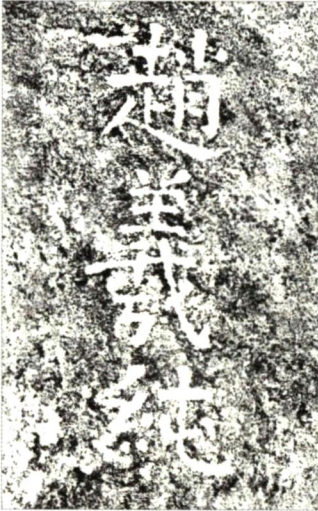 趙義純